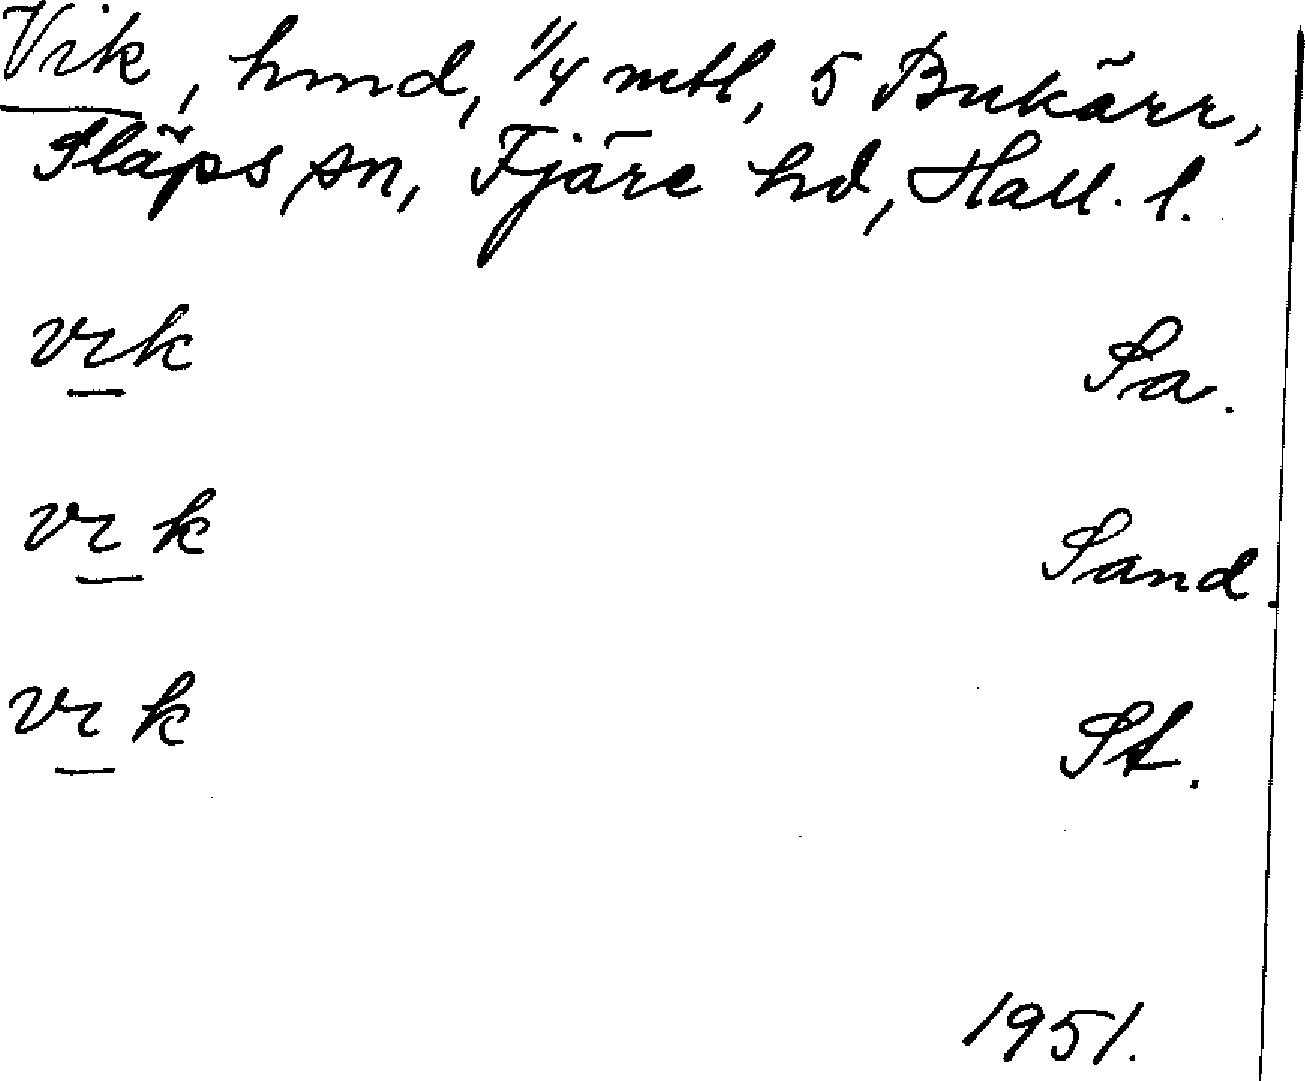 Vik, hmd, 1/4 mtl, 5 Bukärr,
Släps sn, Fjäre hd, Hall. l.
vık Sa.
vı k Sand.
vı k St.
1951.